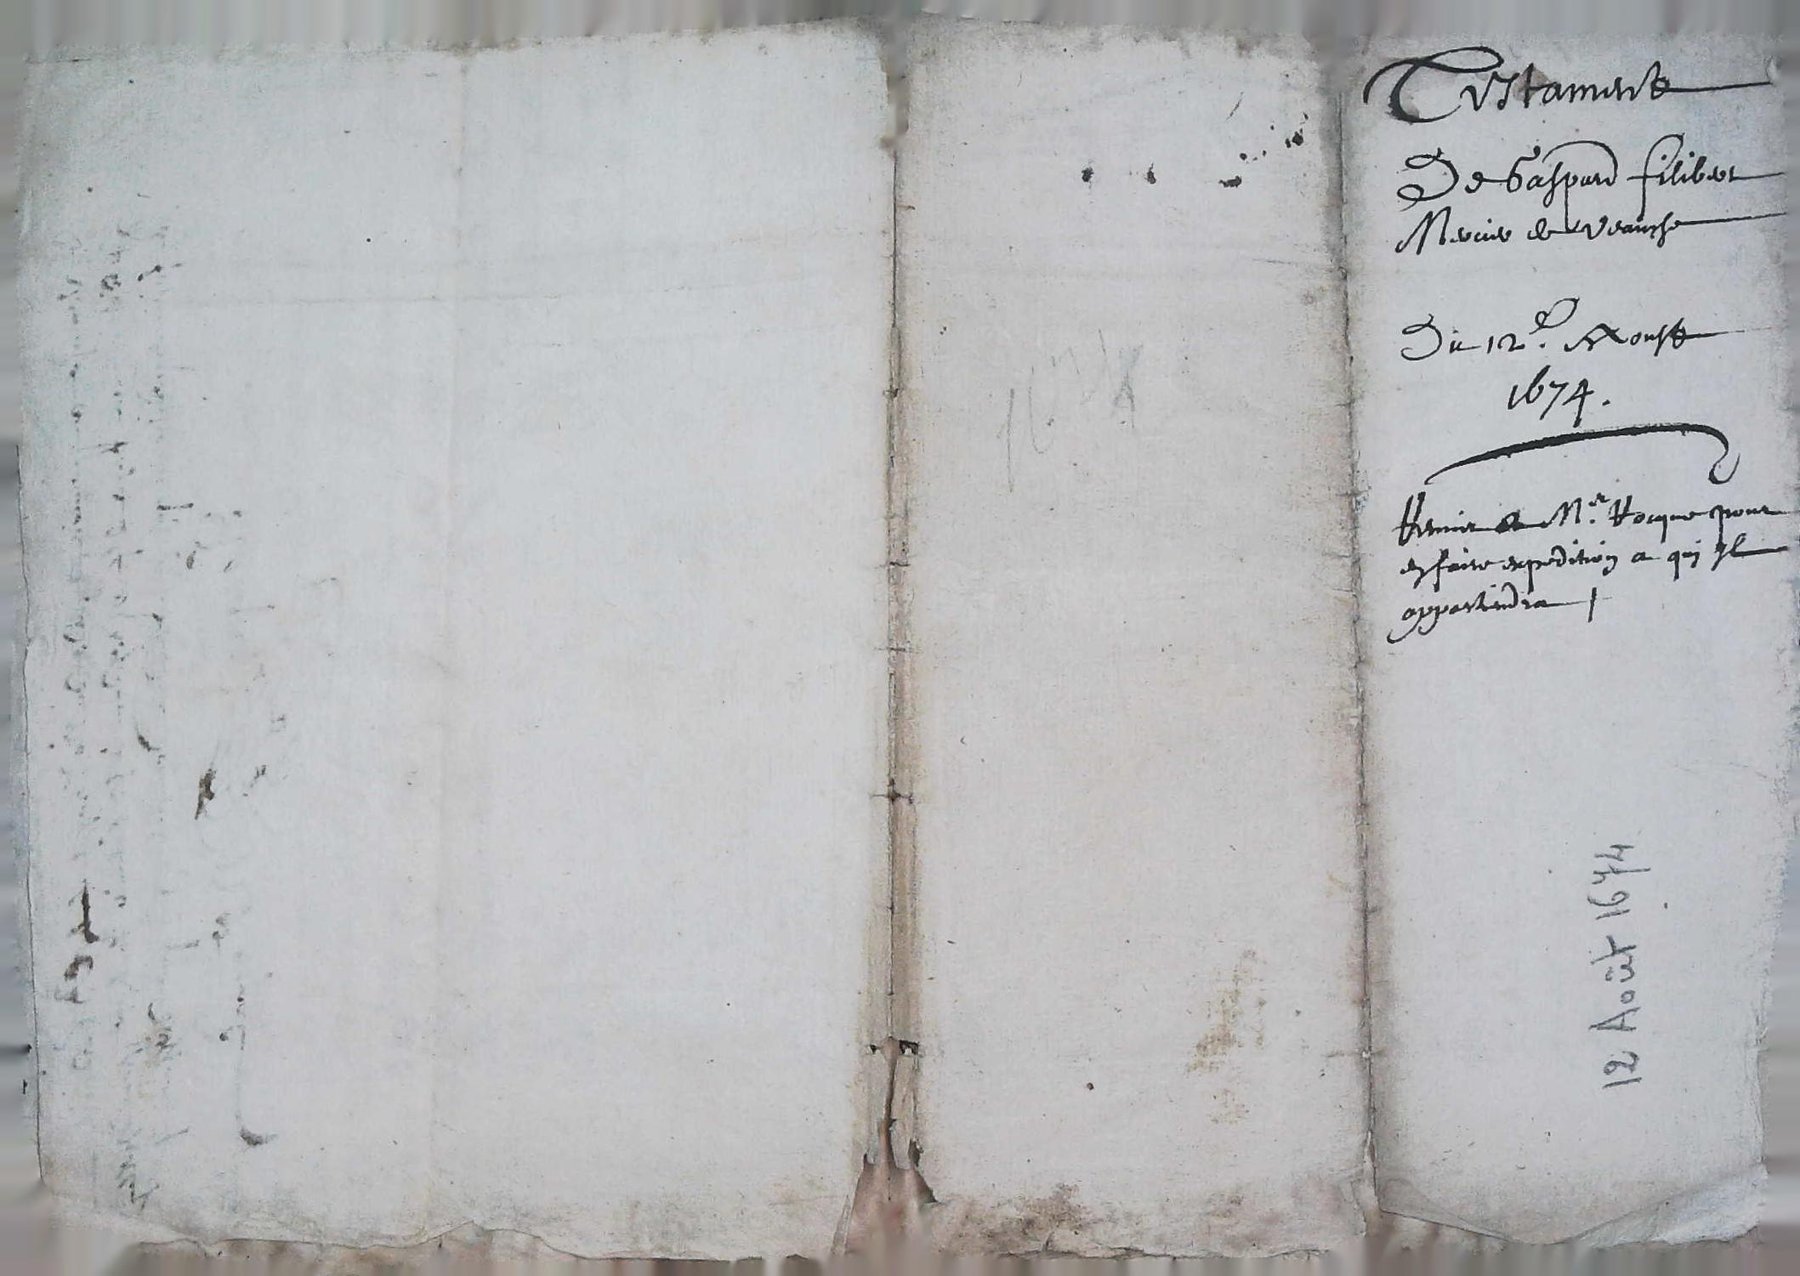 Testament
De Gaspard filiber
Mercier de Veauche
Du 12e. Aoust
1674.
Remis a Mr. Rocque pour
en faire expedition a qui Il
appartiendra
12 Août 1674